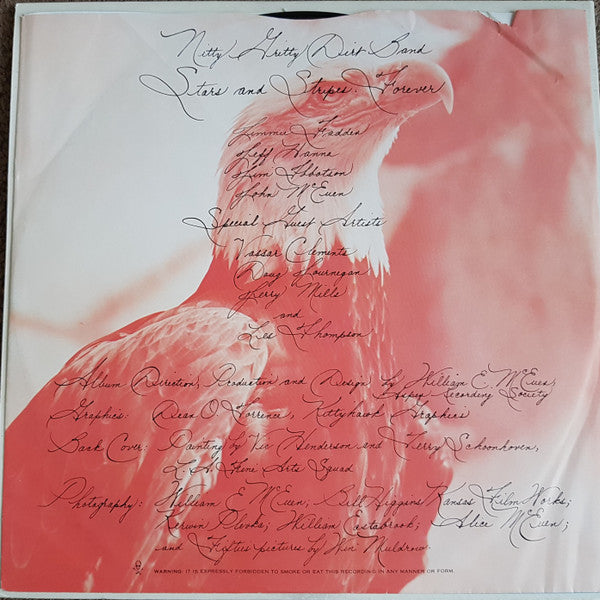 Nitty Gritty Dirt Band
Stars and Stripes Forever
Jimmie Fadden
Jeff Hanna
Jim Ibbotson
John McEuen
Special Guest Artists
Vassar Clements
Doug Journegan
Jerry Mills
and
Les Thompson
Album Direction, Production and Design by William E. McEuen,
Aspen Recording Society
Graphics: Dean O. Torrence, Kittyhawk Graphics
Back Cover: Painting by Vic Henderson and Terry Schoonhoven,
L.A. Fine Arts Squad
Photography: William E. McEuen; Bill Higgins Kansas Film Works;
William Eastabrook; Alice McEuen;
and Fifties pictures by Win Muldrow.
WARNING: IT IS EXPRESSLY FORBIDDEN TO SMOKE OR EAT THIS RECORDING IN ANY MANNER OR FORM.